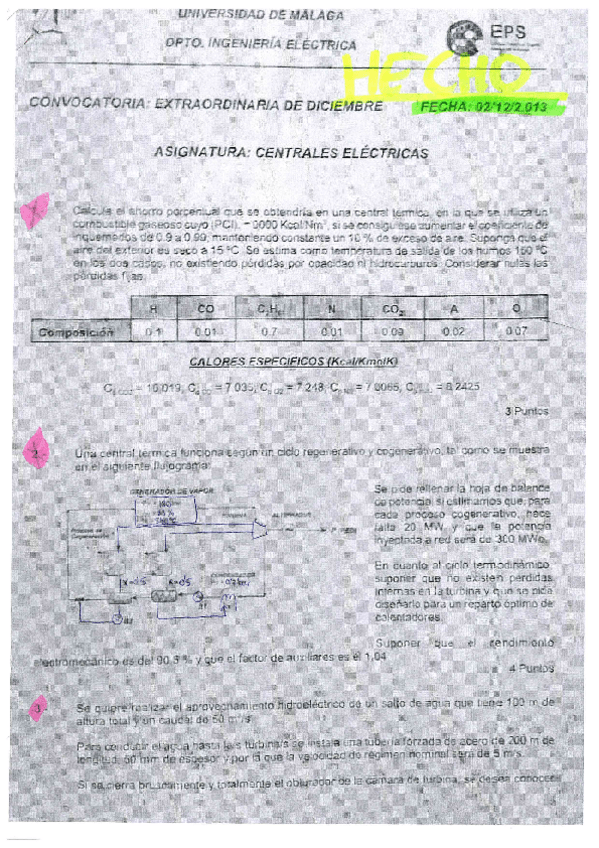 UNIVERSIDAD DE MÁLAGA
DPTO. INGENIERÍA ELÉCTRICA
EPS
HECHO
CONVOCATORIA: EXTRAORDINARIA DE DICIEMBRE FECHA: 02/12/2.013
ASIGNATURA: CENTRALES ELÉCTRICAS
Calcule el ahorro porcentual que se obtendría en una central térmica, en la que se utiliza un
combustible gaseoso cuyo (PCI), = 9000 Kcal/Nm³, si se consiguiese aumentar el coeficiente de
inquemados de 0.9 a 0.99, manteniendo constante un 10 % de exceso de aire. Suponga que el
aire del exterior es seco a 15 ºC. Se estima como temperatura de salida de los humos 160 ºC
en los dos casos, no existiendo pérdidas por opacidad ni hidrocarburos. Considerar nulas las
pérdidas fijas.
H CO N CO₂ A O
Composición 0.1 0.01 0.7 0.01 0.09 0.02 0.07
CALORES ESPECIFICOS (Kcal/Kmol/K)
= 10,019, = 7.035, = 7.248, = 8.2425
3 Puntos
2. Una central térmica funciona según un ciclo regenerativo y cogenerativo, tal como se muestra
en el siguiente flujograma:
GENERADOR DE VAPOR
ALTERNADOR
CONDENSADOR
Se pide rellenar la hoja de balance
de potencia si estimamos que, para
cada proceso cogenerativo, hace
falta 20 MW y que la potencia
inyectada a red será de 300 MWe.
En cuanto al ciclo termodinámico,
suponer que no existen pérdidas
internas en la turbina y que se pide
diseñarlo para un reparto óptimo de
calentadores.
Suponer que el rendimiento
electromecánico es del 90,5 % y que el factor de auxiliares es el 1,04
4 Puntos
3. Se quiere realizar el aprovechamiento hidroeléctrico de un salto de agua que tiene 100 m de
altura total y un caudal de 50 m³/s
Para conducir el agua hasta la/s turbina/s se instala una tubería forzada de acero de 200 m de
longitud, 50 mm de espesor y por la que la velocidad de régimen nominal será de 5 m/s.
Si se cierra bruscamente y totalmente el obturador de la cámara de turbina, se desea conocer